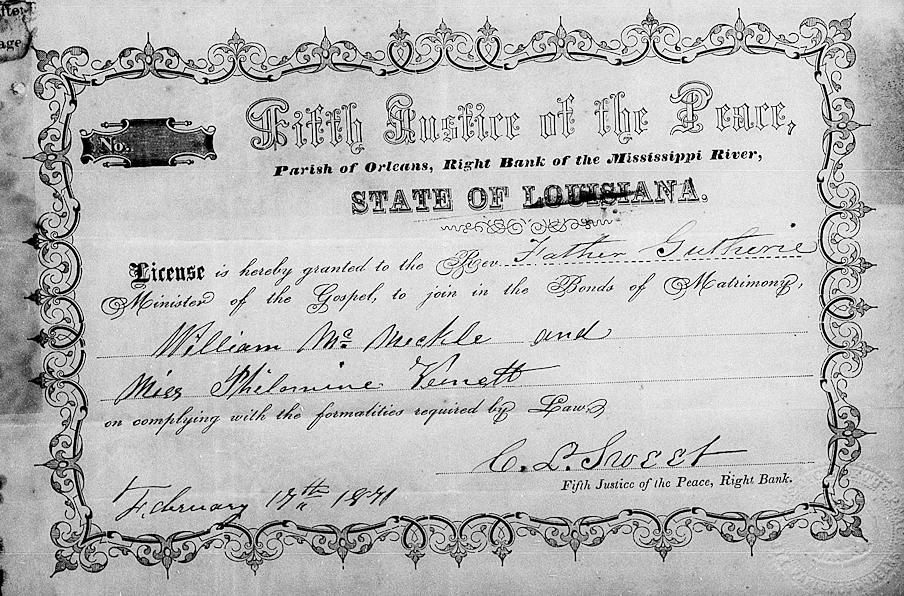 age
No.
Fifth Justice of the Peace,
Parish of Orleans, Right Bank of the Mississippi River,
STATE OF LOUISIANA.
License is hereby granted to the Rev. Father Gutherie
Minister of the Gospel, to join in the Bonds of Matrimony,
William Mc Meckle and
Miss Philomine Venett
on complying with the formalities required by Law
C. L. Sweet
Fifth Justice of the Peace, Right Bank.
February 17th 1871